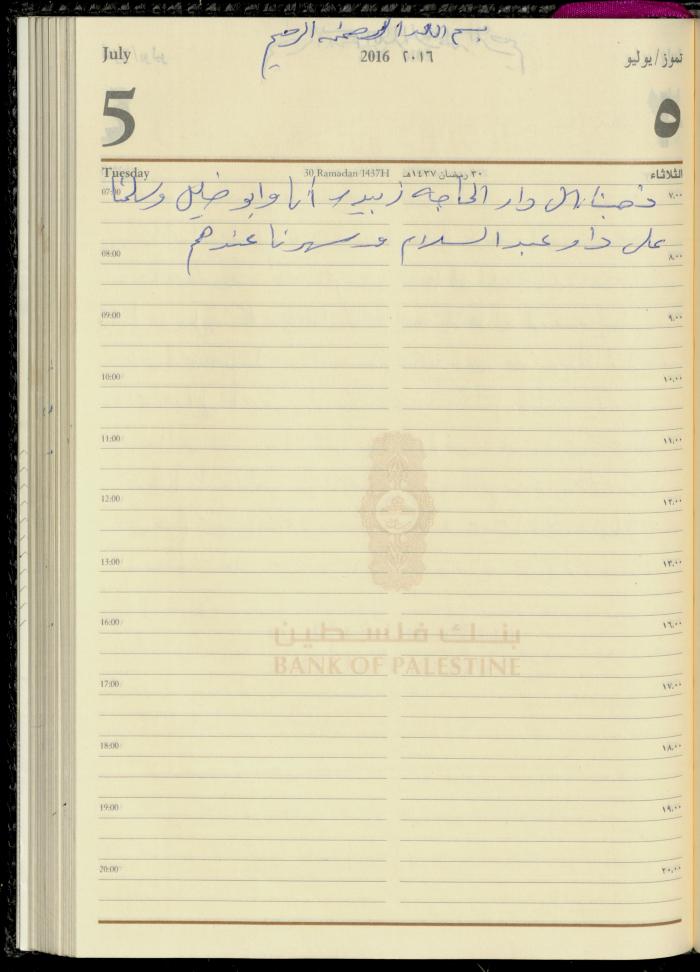 بسم الله الرحمن الرحيم
July 2016 ٢٠١٦ تموز / يوليو
5 ٥
Tuesday 30 Ramadan 1437H ٣٠ رمضان ١٤٣٧هـ الثلاثاء
07:00 ٧:٠٠
ذهبنا الى دار الحاجه زبيده أنا وابو خليل وسلمنا
على دار عبد السلام وسهرنا عندهم
08:00 ٨:٠٠
09:00 ٩:٠٠
10:00 ١٠:٠٠
11:00 ١١:٠٠
12:00 ١٢:٠٠
13:00 ١٣:٠٠
16:00 ١٦:٠٠
بنك فلسطين
BANK OF PALESTINE
17:00 ١٧:٠٠
18:00 ١٨:٠٠
19:00 ١٩:٠٠
20:00 ٢٠:٠٠